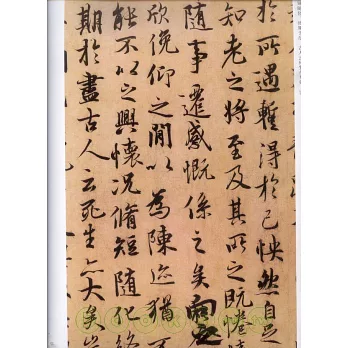 於所遇暫得於己怏然自足
知老之將至及其所之既惓
隨事遷感慨係之矣向
欣俛仰之間以為陳迹猶不
能不以之興懷況脩短隨化終
期於盡古人云死生亦大矣豈